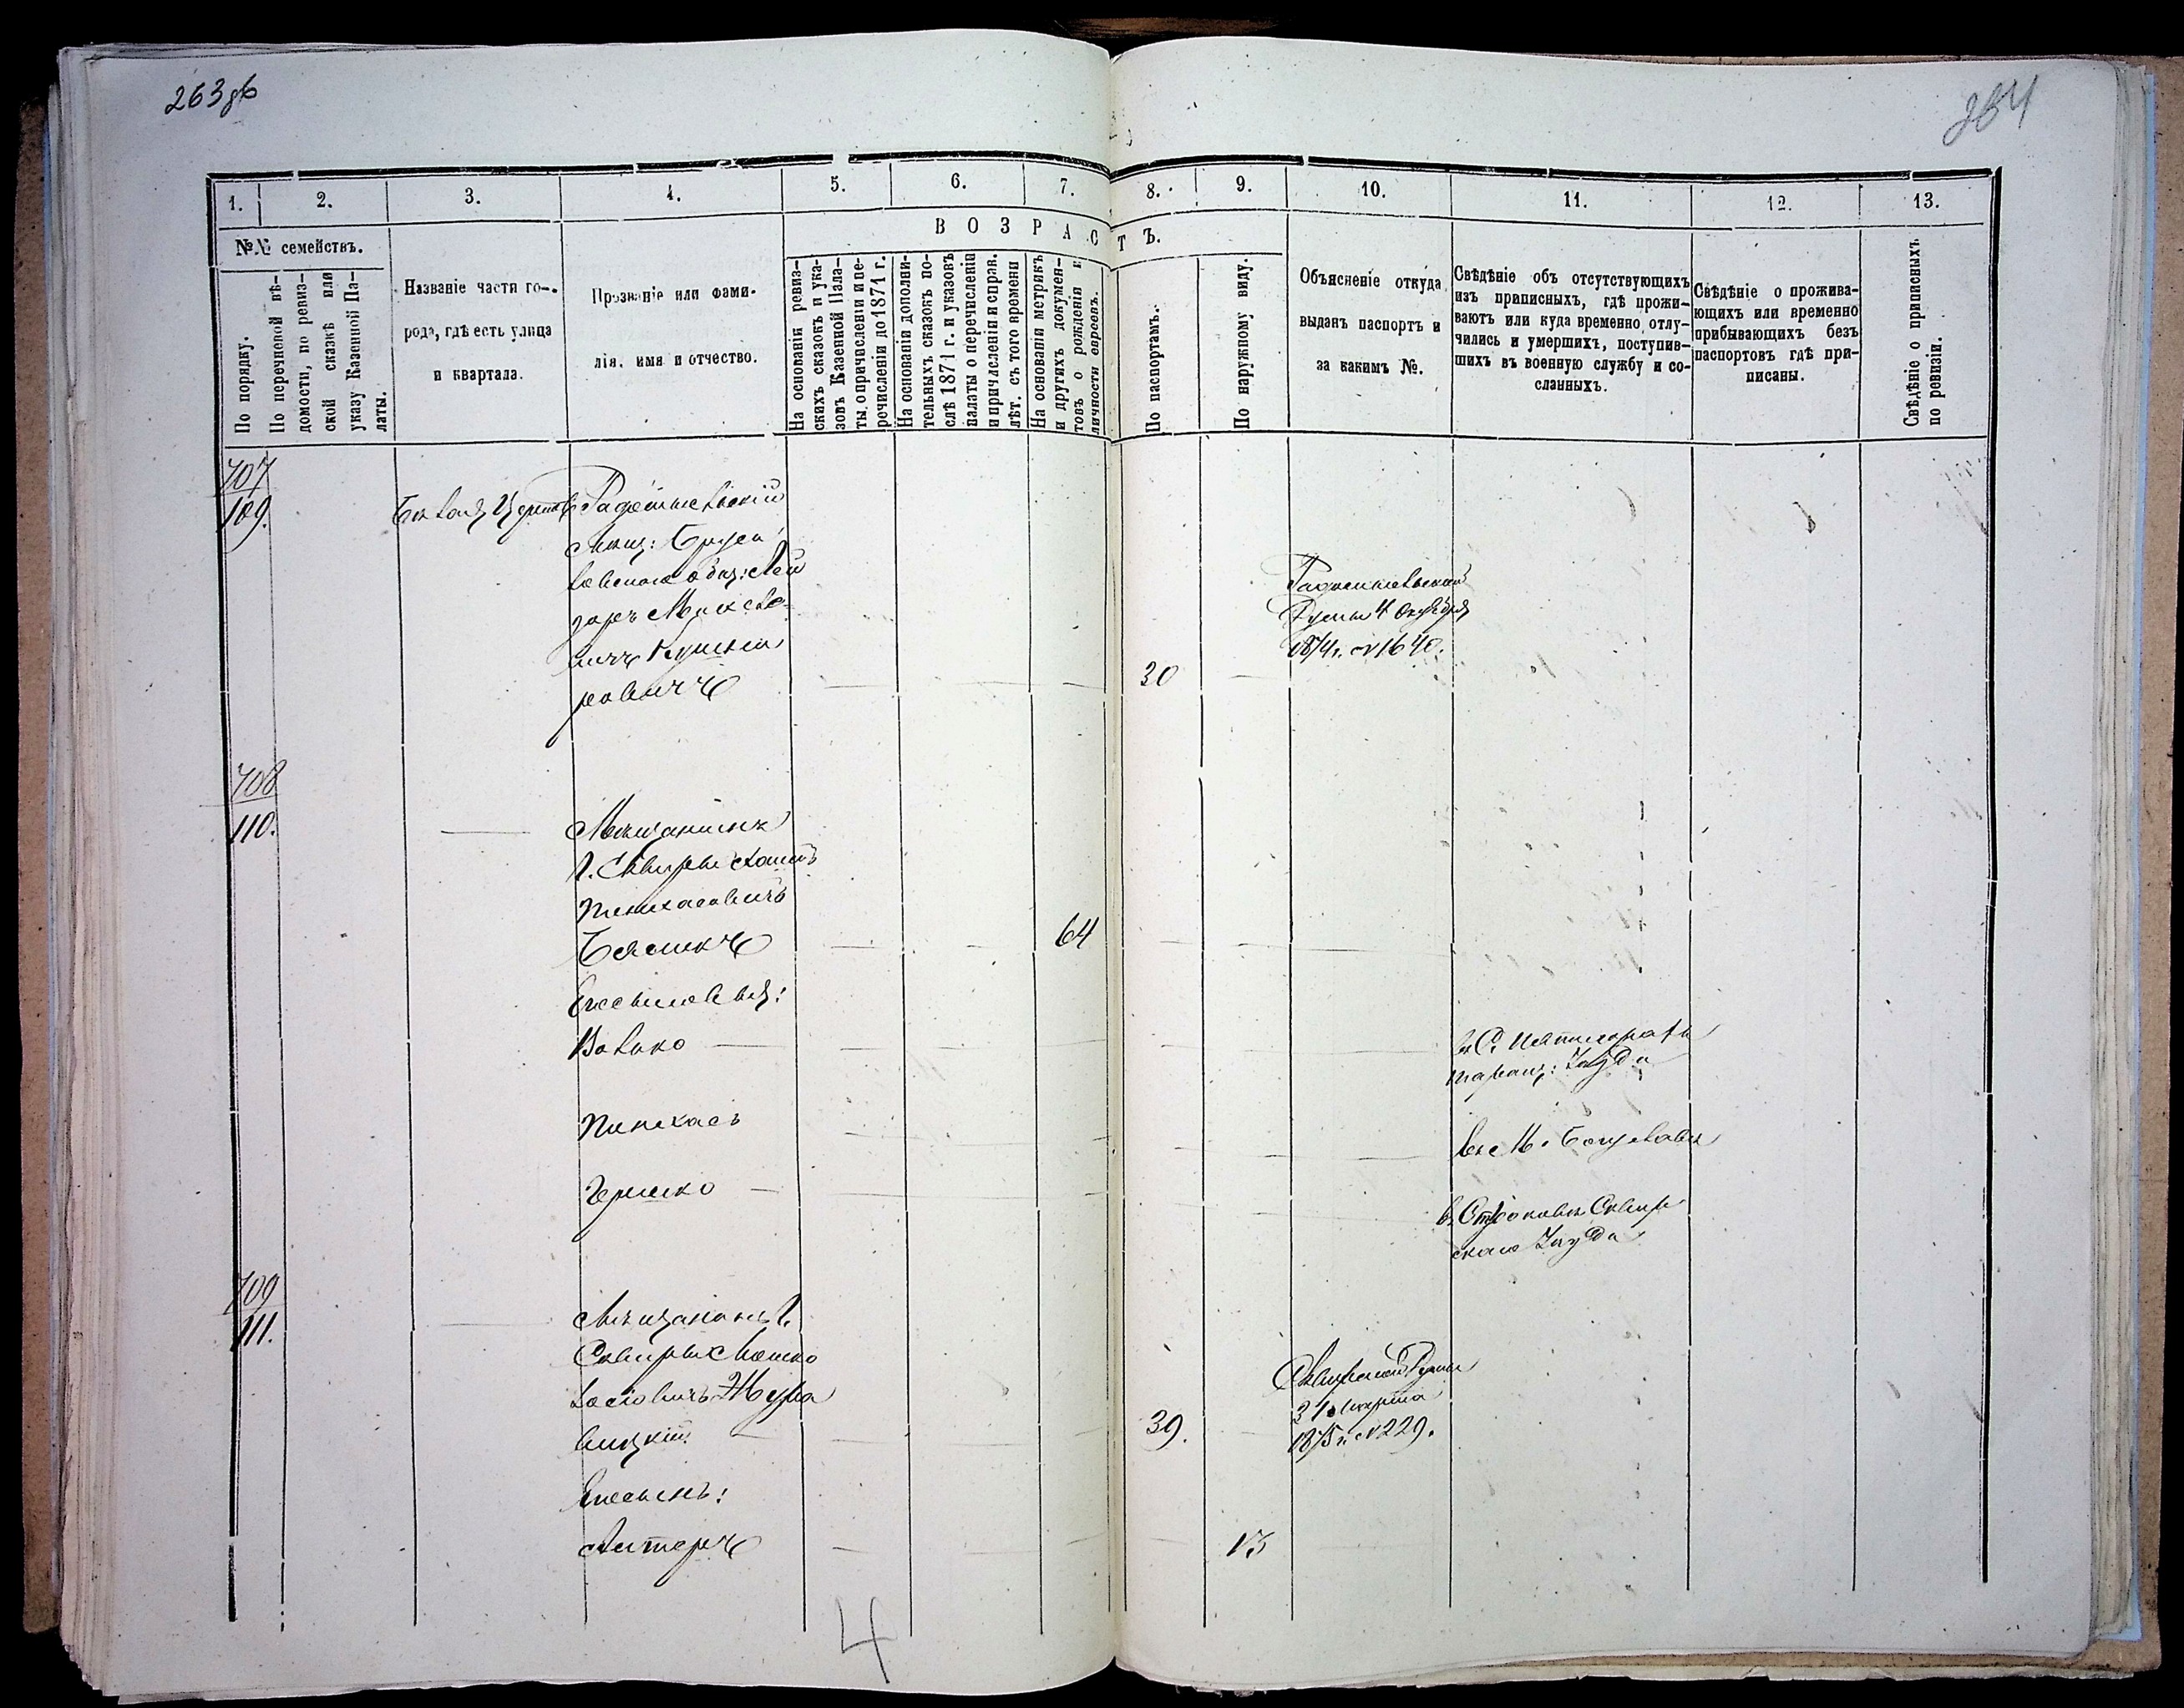 263 об
264
1.
2.
3.
4.
5.
6.
7.
8.
9.
10.
11.
12.
13.
№№ семействъ.
ВОЗРАСТЪ.
По порядку.
По перечневой вѣ-
домости, по ревиз-
ской сказкѣ или
указу Казенной Па-
латы.
Названіе части го-
рода, гдѣ есть улица
и квартала.
Прозваніе или фами-
лія, имя и отчество.
На основаніи ревиз-
скихъ сказокъ и ука-
зовъ Казенной Пала-
ты о причисленіи и пе-
речисленіи до 1871 г.
На основаніи дополни-
тельныхъ сказокъ по-
слѣ 1871 г. и указовъ
палаты о перечисленіи
и причисленіи и справ.
лѣт. съ того времени
На основаніи метрикъ
и другихъ докумен-
товъ о рожденіи и
личности евреевъ.
По паспортамъ.
По наружному виду.
Объясненіе откуда
выданъ паспортъ и
за какимъ №.
Свѣдѣніе объ отсутствующихъ
изъ приписныхъ, гдѣ прожи-
ваютъ или куда временно отлу-
чились и умершихъ, поступив-
шихъ въ военную службу и со-
сланныхъ.
Свѣдѣніе о прожива-
ющихъ или временно
прибывающихъ безъ
паспортовъ гдѣ при-
писаны.
Свѣдѣніе о приписныхъ
по ревизіи.
707
109.
Бѣлая Церковь
Радомысльскій
мѣщ: Бруси
ловскаго общ: Лей
заръ Мошко
вичъ Кушни
ровичъ
30
Радомысльской
Думы 4 Октября
1874 г. № 1640.
708
110.
Мѣщанинъ
г. Сквиры
Пинхасовичъ
64
Его сыновья:
Волько
Таращ: Уѣзда
Пинхасъ
въ М.
Гершко
Сквир
скаго Уѣзда
709
111.
Мѣщанинъ г.
Сквиры Мошко
Іосіовичъ Жура
вицкій
39.
Сквирской Думы
31 Марта
1875 г. № 229.
Его сынъ:
Алтеръ
13
4